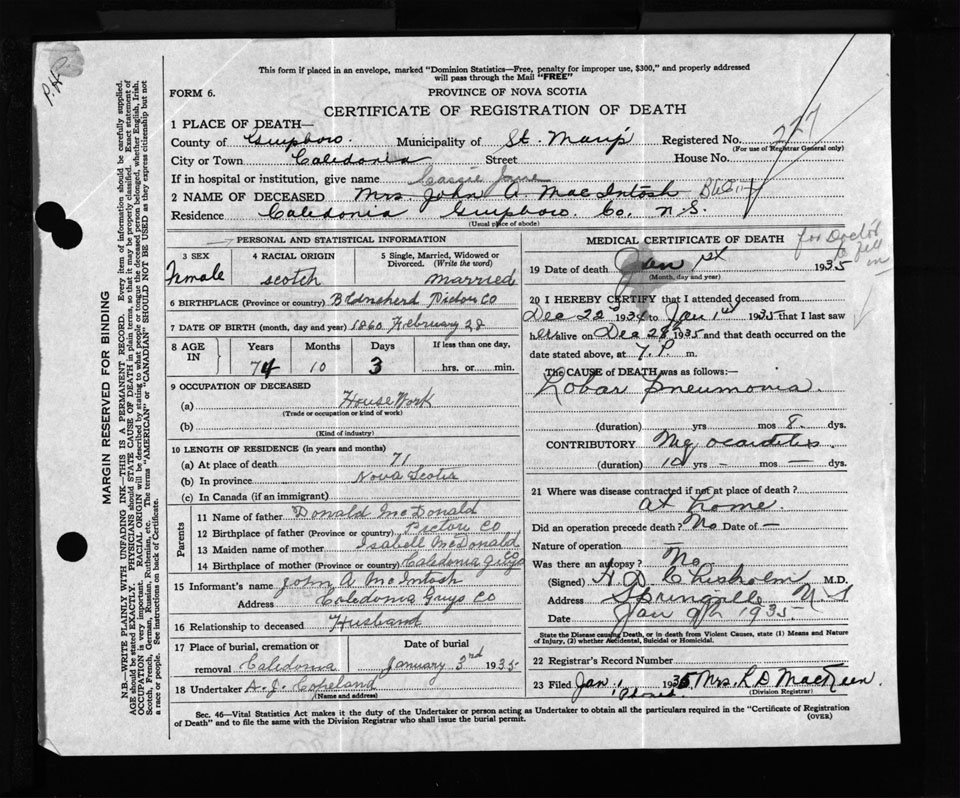 P.H.
This form if placed in an envelope, marked "Dominion Statistics—Free, penalty for improper use, $300," and properly addressed
will pass through the Mail "FREE"
FORM 6.
PROVINCE OF NOVA SCOTIA
CERTIFICATE OF REGISTRATION OF DEATH
227
1 PLACE OF DEATH—
County of Guysboro. Municipality of St. Mary's Registered No.
(For use of Registrar General only)
City or Town Caledonia Street House No.
If in hospital or institution, give name Cassie Jane
2 NAME OF DECEASED Mrs. John A. MacIntosh
Residence Caledonia Guysboro. Co. N.S.
(Usual place of abode)
PERSONAL AND STATISTICAL INFORMATION
3 SEX 4 RACIAL ORIGIN 5 Single, Married, Widowed or
Divorced. (Write the word)
Female scotch married
6 BIRTHPLACE (Province or country) Pictou Co
7 DATE OF BIRTH (month, day and year) 1860 February 28
8 AGE IN Years Months Days If less than one day,
74 10 3 hrs. or min.
9 OCCUPATION OF DECEASED
(a) House Work
(Trade or occupation or kind of work)
(b)
(Kind of industry)
10 LENGTH OF RESIDENCE (in years and months)
(a) At place of death 71
(b) In province Nova Scotia
(c) In Canada (if an immigrant)
Parents
11 Name of father Donald McDonald
12 Birthplace of father (Province or country) Pictou Co
13 Maiden name of mother Isabell McDonald
14 Birthplace of mother (Province or country) Caledonia Guys Co
15 Informant's name John A McIntosh
Address Caledonia Guys Co
16 Relationship to deceased Husband
17 Place of burial, cremation or Date of burial
removal Caledonia January 3rd 1935
18 Undertaker A. J. Copeland
(Name and address)
MEDICAL CERTIFICATE OF DEATH
for Doctor
to fill
in
19 Date of death Jan 1st 1935
(Month, day and year)
20 I HEREBY CERTIFY that I attended deceased from
Dec 22nd 1934 to Jan 1st 1935 that I last saw
her alive on Dec 28th 1935 and that death occurred on the
date stated above, at 7. P. m.
The CAUSE of DEATH was as follows:—
Lobar Pneumonia.
(duration) yrs mos 8 dys.
CONTRIBUTORY Myocarditis
(duration) 10 yrs – mos — dys.
21 Where was disease contracted if not at place of death?
At home.
Did an operation precede death? No Date of —
Nature of operation —
Was there an autopsy? No
(Signed) H. D. Chisholm M.D.
Address Springville N S
Date Jan 9th 1935
State the Disease causing Death, or in death from Violent Causes, state (1) Means and Nature
of Injury, (2) whether Accidental, Suicidal or Homicidal.
22 Registrar's Record Number
23 Filed Jan. 1 1935 Mrs. R D MacKeen.
(Division Registrar)
Sec. 46—Vital Statistics Act makes it the duty of the Undertaker or person acting as Undertaker to obtain all the particulars required in the "Certificate of Registration
of Death" and to file the same with the Division Registrar who shall issue the burial permit.
(OVER)
MARGIN RESERVED FOR BINDING
N.B.—WRITE PLAINLY WITH UNFADING INK—THIS IS A PERMANENT RECORD. Every item of information should be carefully supplied.
AGE should be stated EXACTLY. PHYSICIANS should STATE CAUSE OF DEATH in plain terms, so that it may be properly classified. Exact statement of
OCCUPATION is very important. RACIAL ORIGIN will be described by stating to what people or tongue the deceased person belonged, whether English, Irish,
Scotch, French, German, Russian, Ruthenian, etc. The terms "AMERICAN" or "CANADIAN" SHOULD NOT BE USED as they express citizenship but not
a race or people. See instructions on back of Certificate.